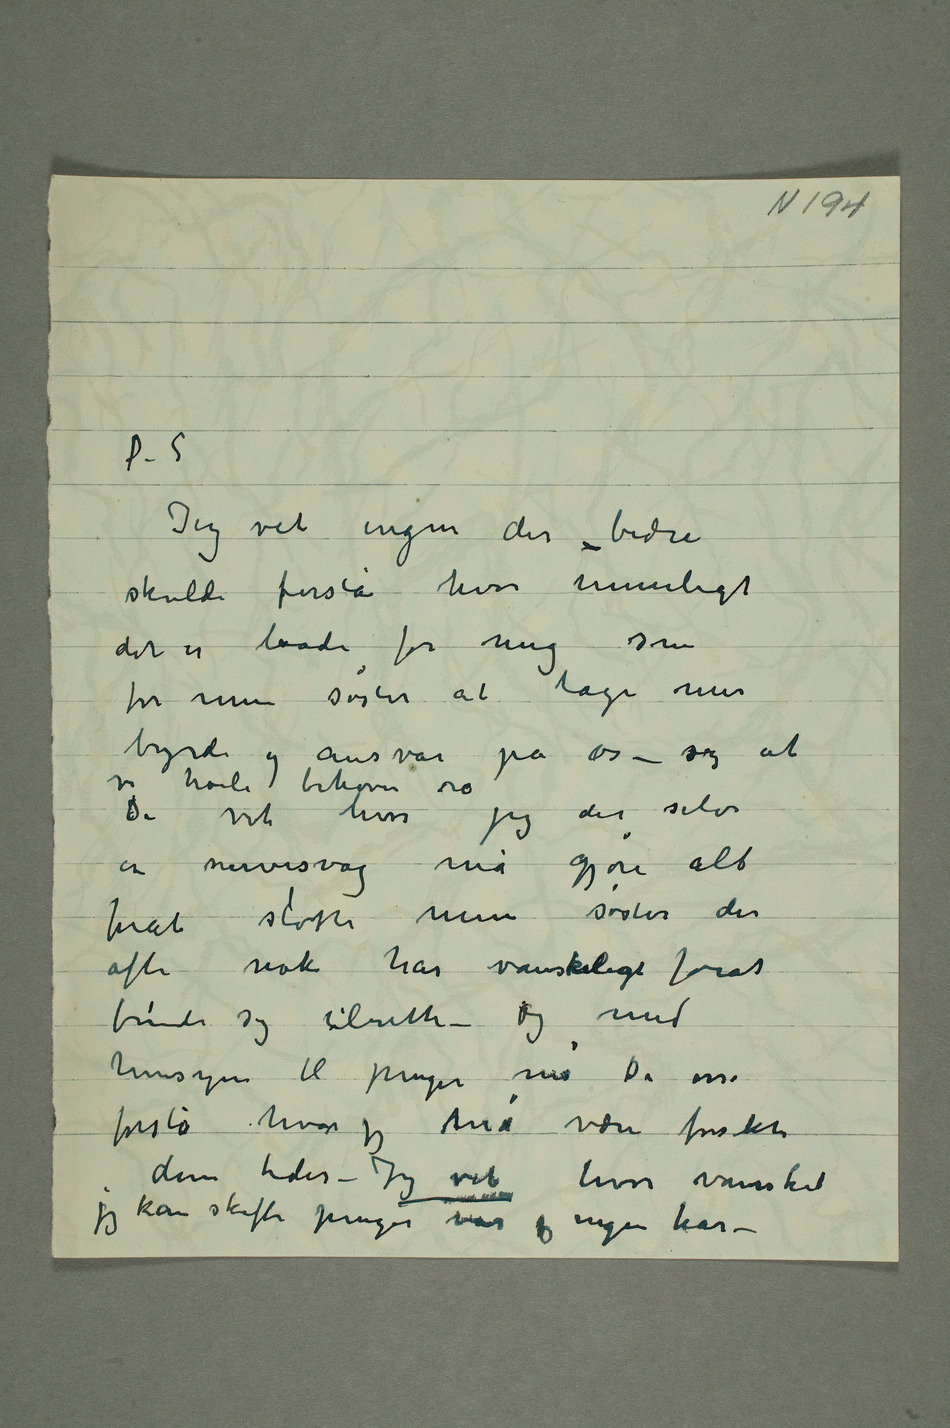 N 194
P. S
Jeg vet ingen der – bedre
skulde forstå hvor umuligt
det er baade for mig som
for min søster at tage mer
byrde og ansvar på os – og at
vi høili behøver ro
De vet hvor jeg der selv
er nervesvag må gjøre alt
forat støtte min søster der
ofte nok har vanskeligt forat
finde sig tilrette – Og med
hensyn til penger må De osse
forstå hvor jeg må være forsiktig
denne tider – Jeg vet hvor vanskelt
jeg kan skaffe penger når jeg ingen har –